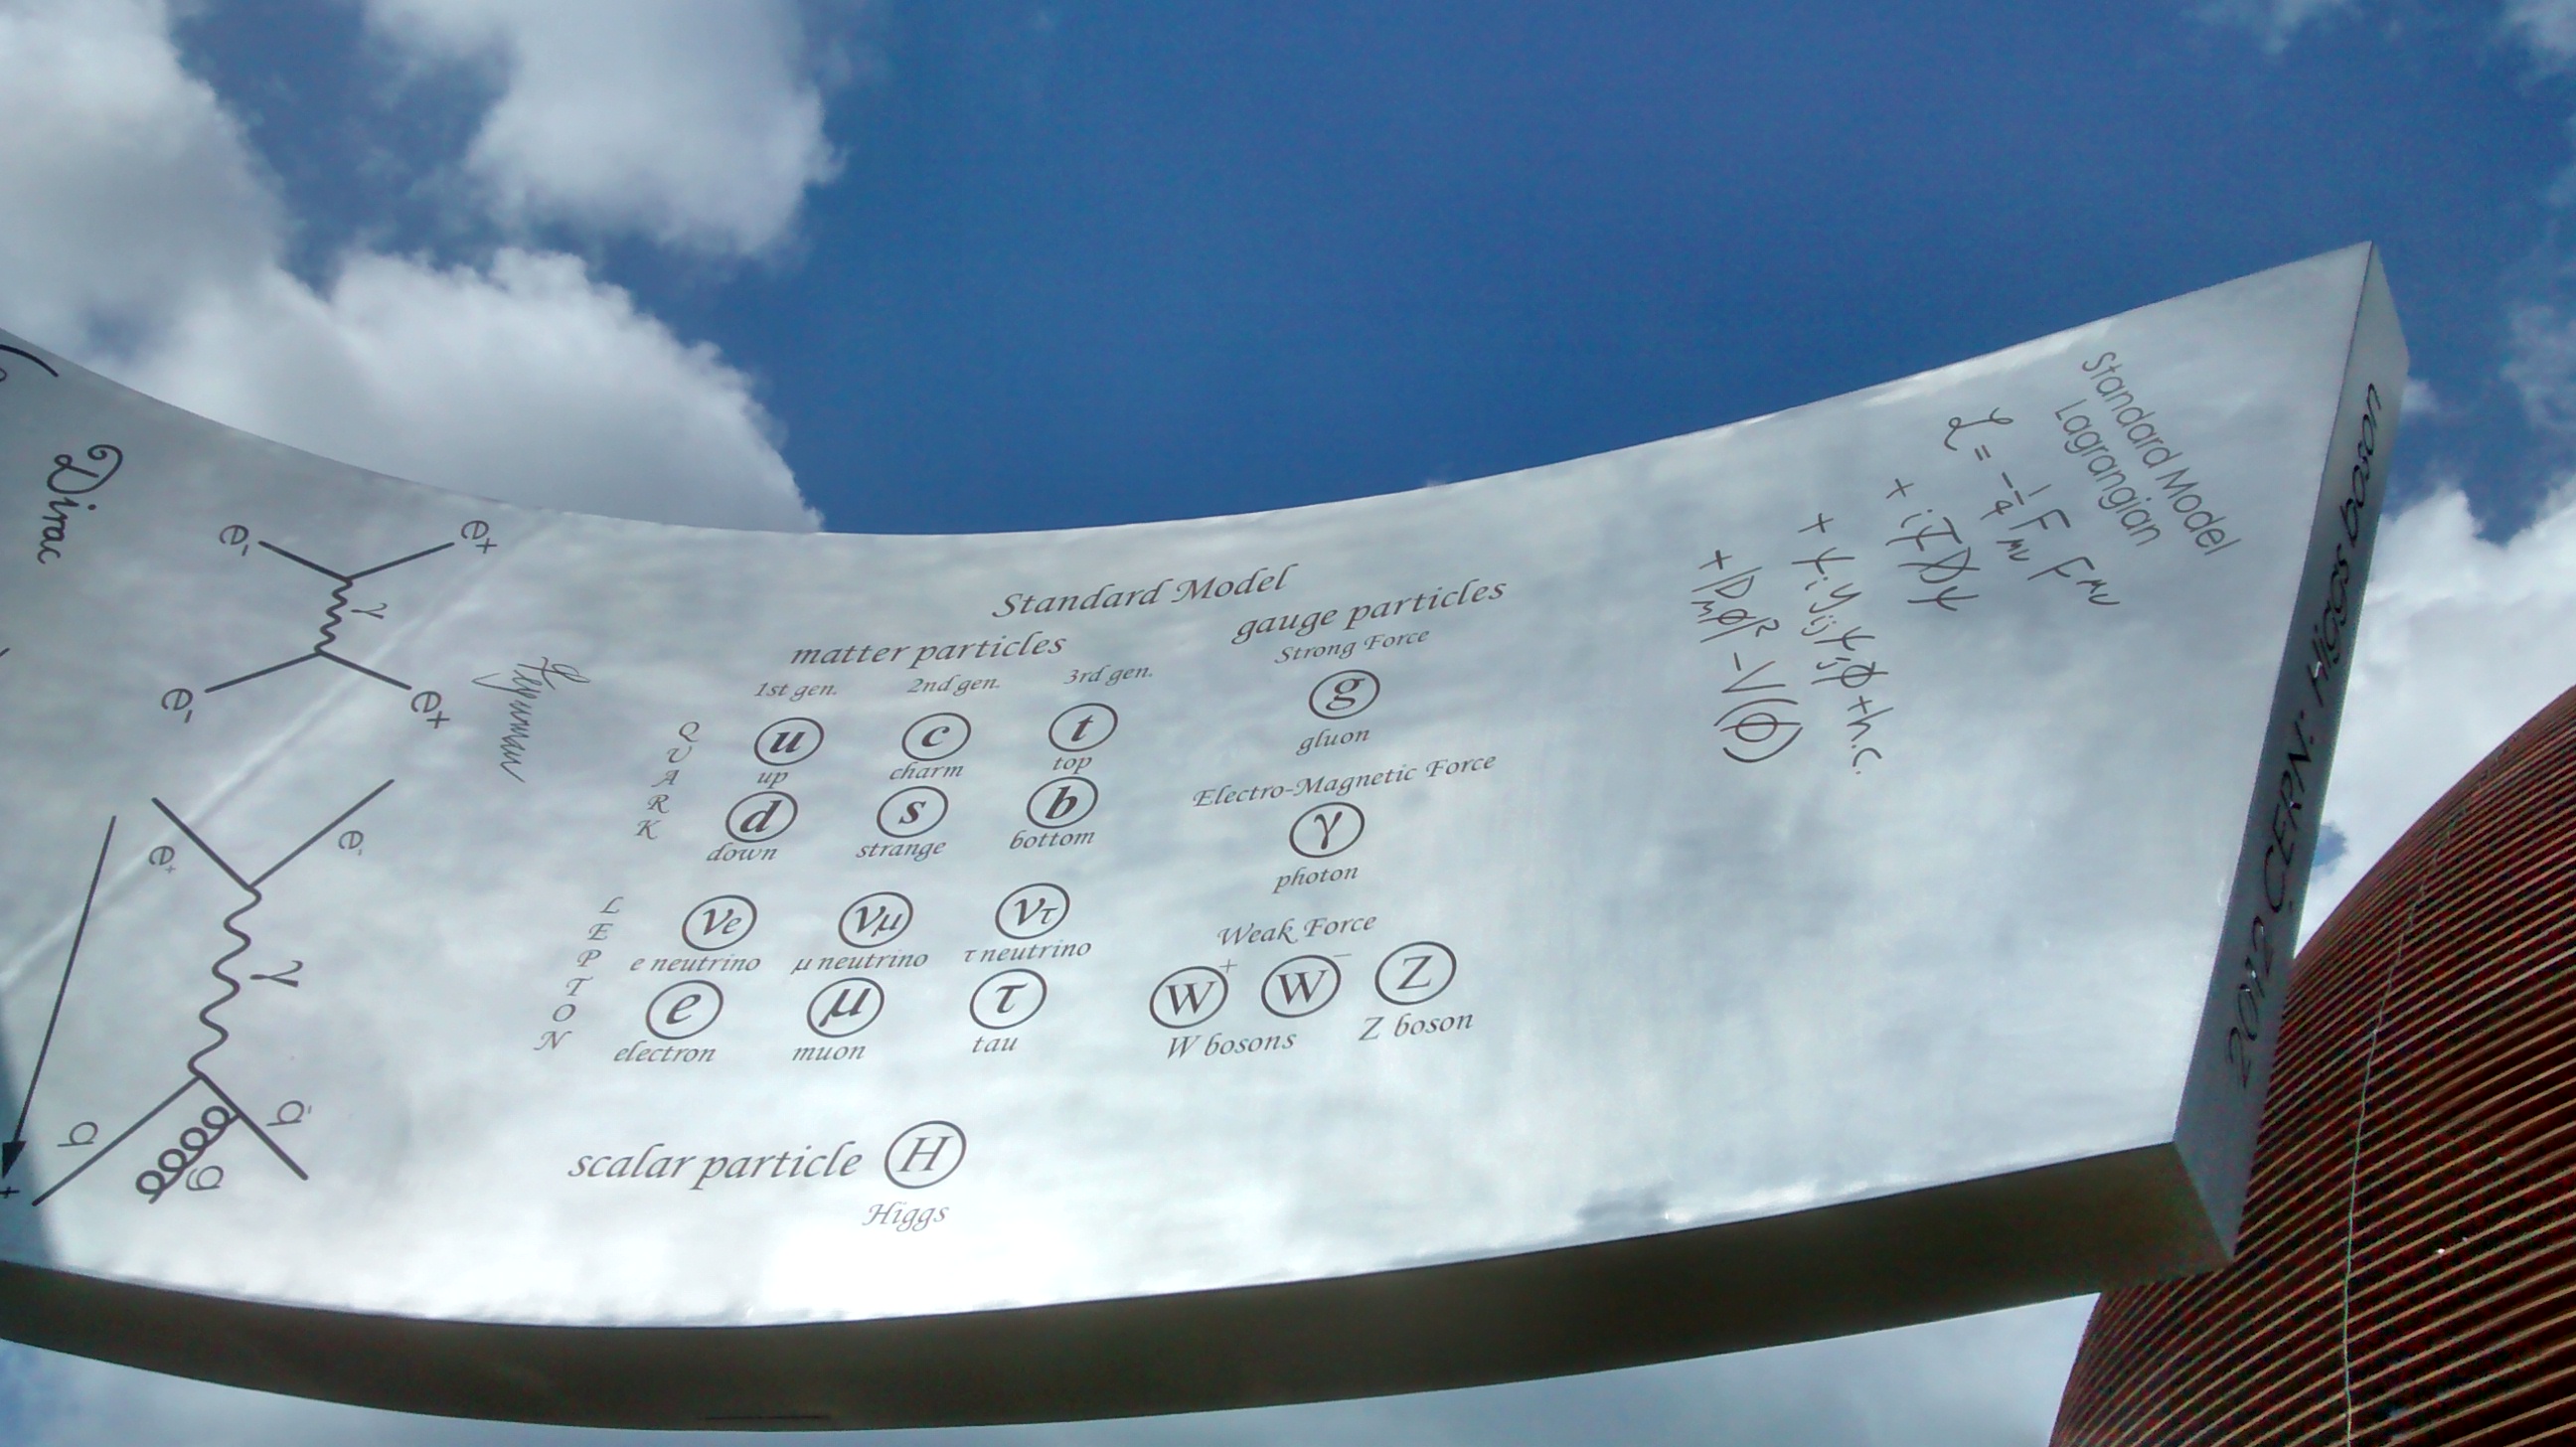 Dirac
e⁻ e⁺
γ
e⁻ e⁺
Feynman
e⁺ e⁻
γ
q q̄
g
Standard Model
matter particles
1st gen. 2nd gen. 3rd gen.
QUARK
u c t
up charm top
d s b
down strange bottom
LEPTON
νe νμ ντ
e neutrino μ neutrino τ neutrino
e μ τ
electron muon tau
gauge particles
Strong Force
g
gluon
Electro-Magnetic Force
γ
photon
Weak Force
W⁺ W⁻ Z
W bosons Z boson
scalar particle H
Higgs
Standard Model
Lagrangian
ℒ = -¼ Fμν Fμν
+ iψ̄D̸ψ
+ ψi yij ψj φ + h.c.
+ |Dμφ|² - V(φ)
2012 CERN: Higgs boson